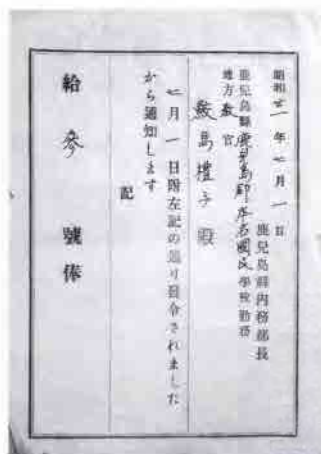 昭和廿一年七月一日
鹿児島縣内務部長
鹿児島縣鹿児島郡本名國民學校勤務
地方教官
鮫島禮子殿
七月一日附左記の通り發令されました
から通知します
記
給參號俸